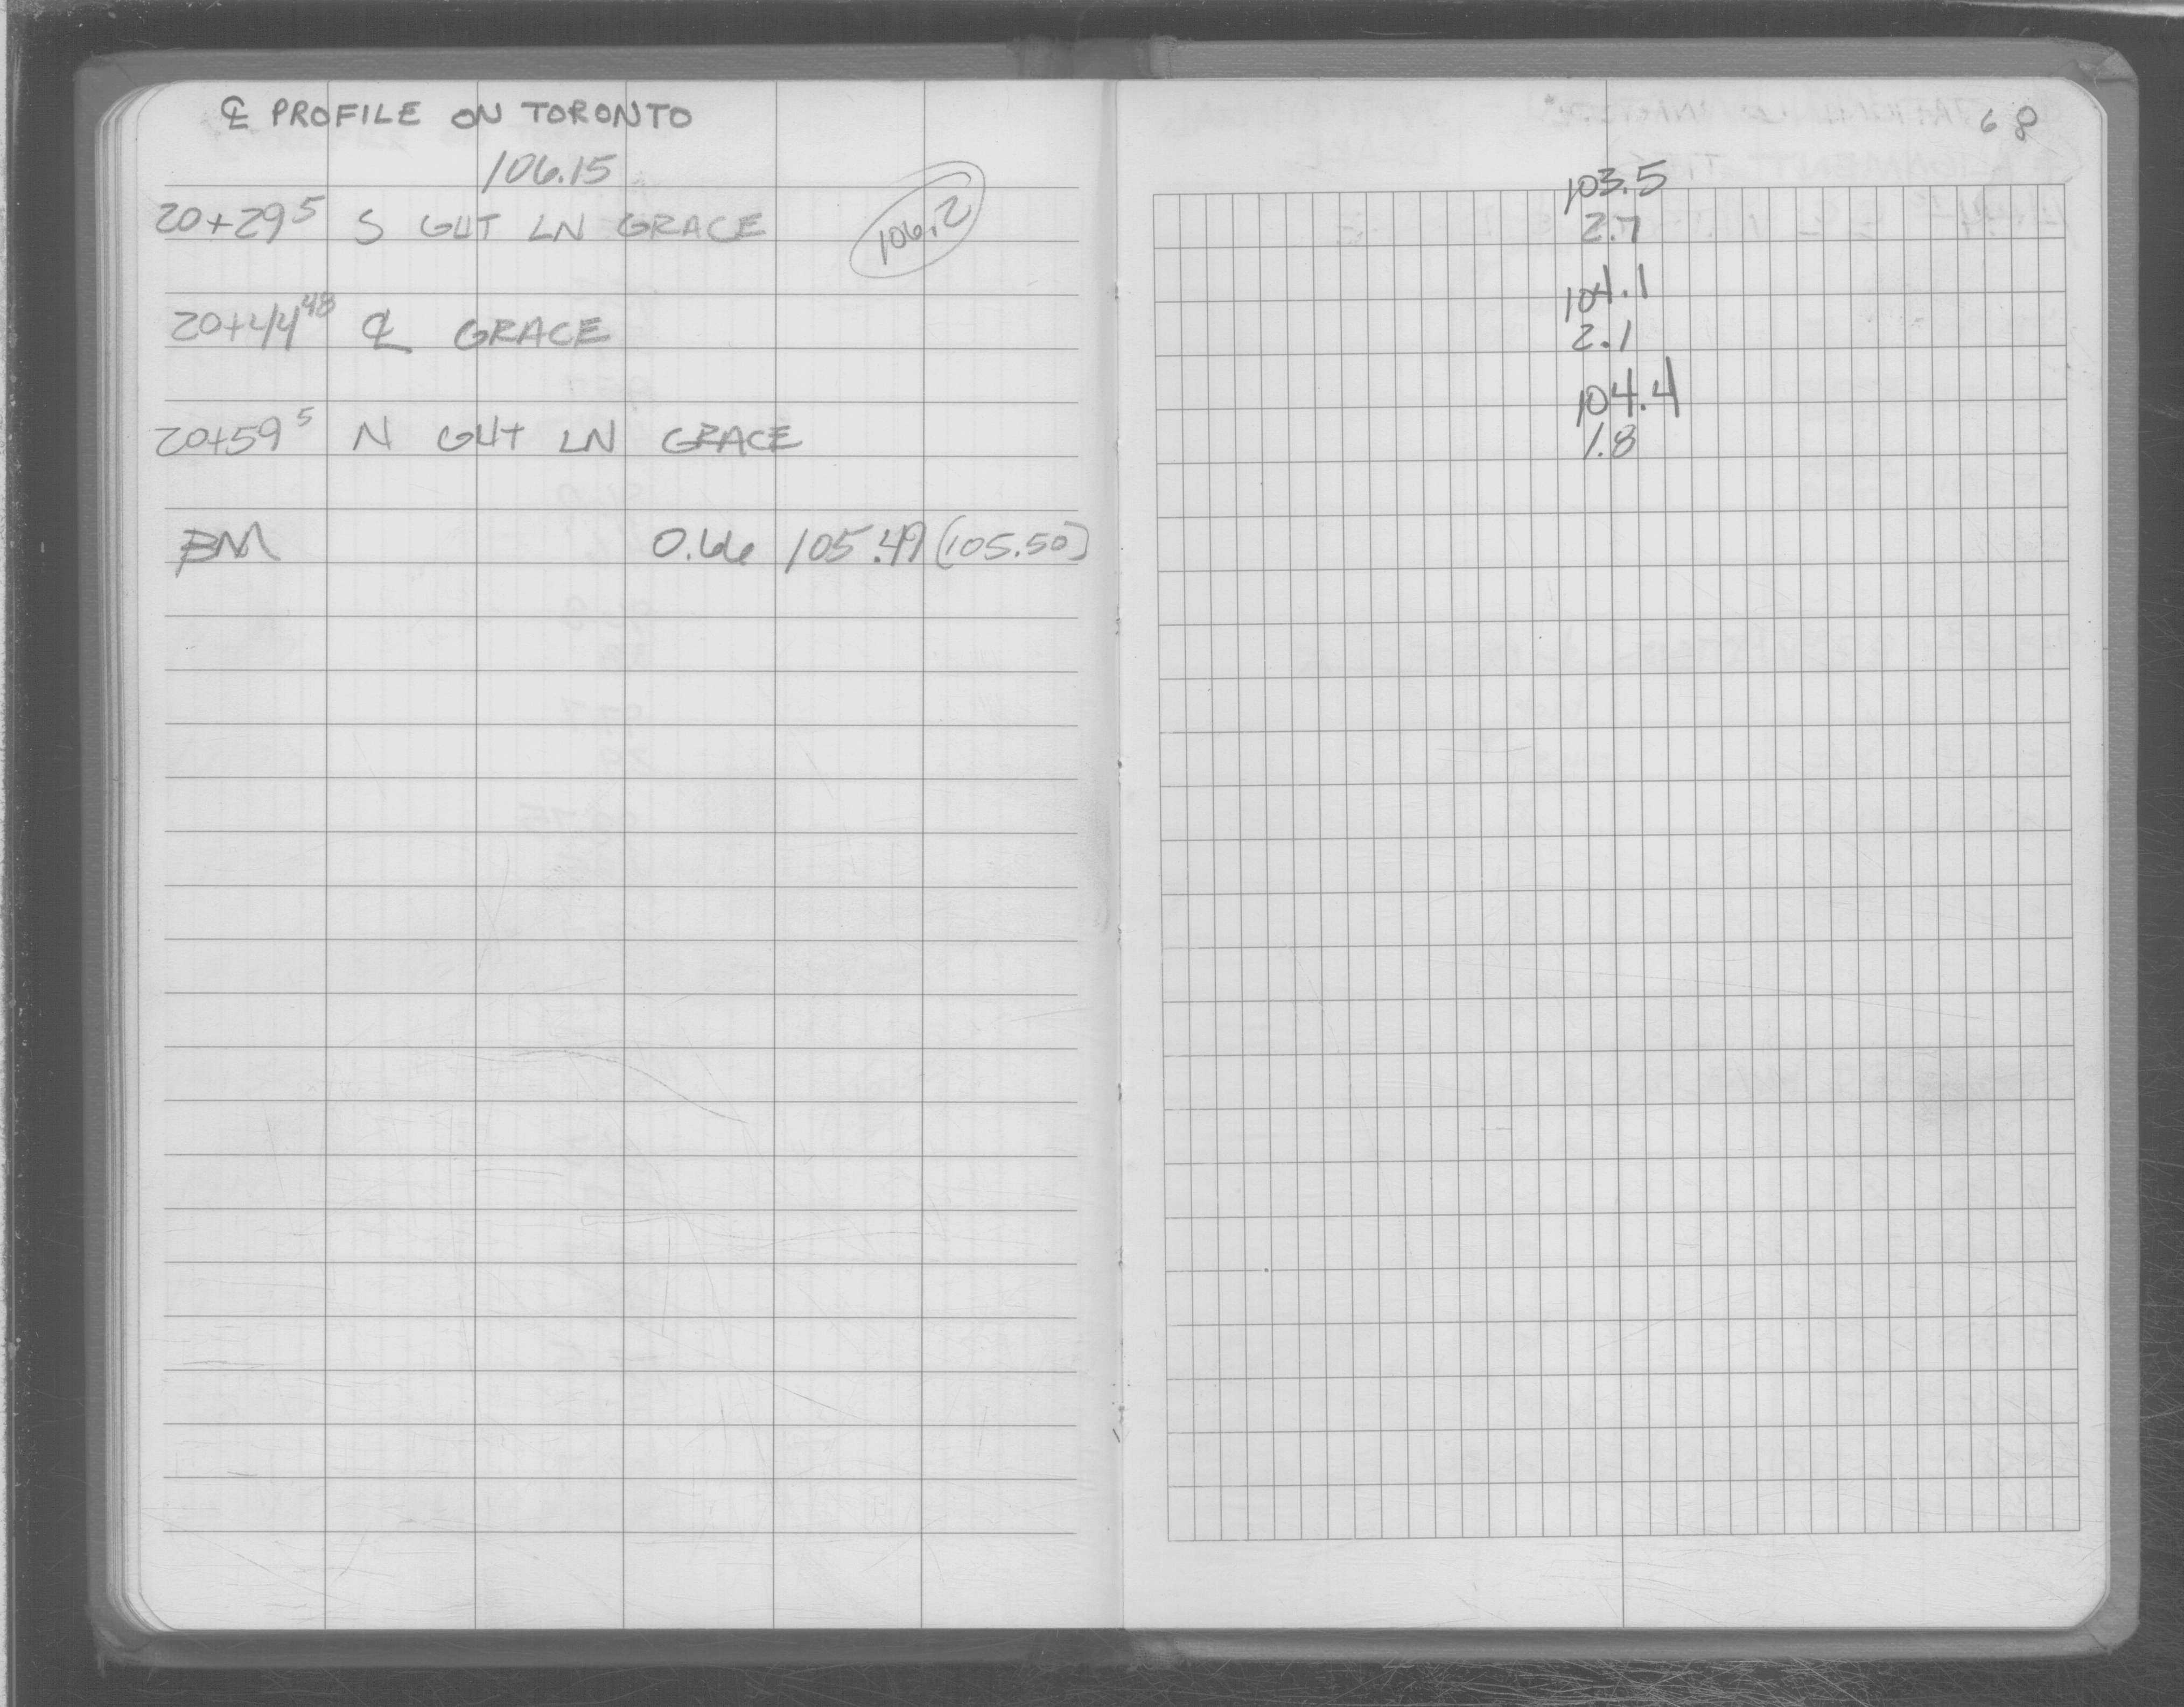 ℄ PROFILE ON TORONTO
106.15
20+29⁵ S GUT LN GRACE 106.2
20+44⁴⁸ ℄ GRACE
20+59⁵ N GUT LN GRACE
BM 0.66 105.49 (105.50)
68
103.5
2.7
104.1
2.1
104.4
1.8